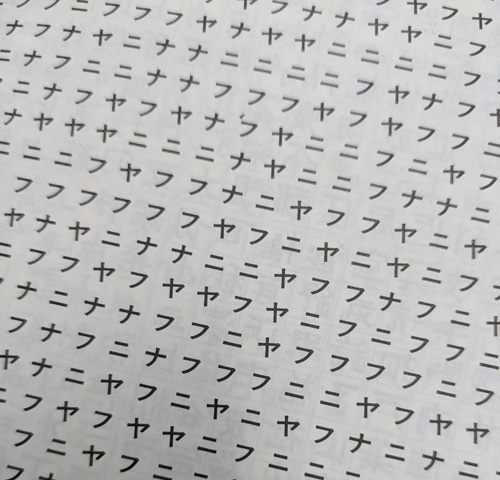 ヤ フ ヤ
ヤ フ ナ ナ ヤ ヤ ニ フ
フ フ ニ フ フ フ ヤ ナ ヤ ヤ ニ ニ ニ ニ フ
ナ フ ナ ヤ ニ ナ ナ ニ ニ ニ ニ フ ヤ ナ フ ヤ
ニ ナ フ ニ ニ ナ ナ フ フ フ ヤ フ ヤ ナ フ ニ
ニ ナ フ ヤ フ ヤ ナ フ ヤ ニ ニ フ ナ ニ フ
ナ ヤ ヤ ヤ ニ ニ ニ ナ ヤ ニ ニ フ ナ ナ ニ
ニ ニ ニ フ ヤ フ フ ナ ニ ヤ フ フ ヤ ニ ヤ
フ フ フ フ フ フ ヤ フ ニ ヤ ニ ヤ ニ フ フ
ヤ ナ ヤ ニ ナ ナ ニ ニ ヤ フ フ ナ フ ナ ニ
ニ フ フ ヤ フ ヤ ヤ フ ヤ ニ フ ニ フ フ ニ
ナ ニ ナ ナ フ フ ニ ヤ フ フ フ フ ニ フ
フ ナ フ ニ ナ フ フ フ ニ ニ ヤ フ ヤ ヤ
ヤ ナ ニ ヤ フ ニ ヤ ニ ヤ フ ナ ニ ナ ニ
ニ フ ヤ フ ヤ ヤ ニ フ ニ ニ ニ
フ ニ ヤ フ ニ ニ
フ ナ